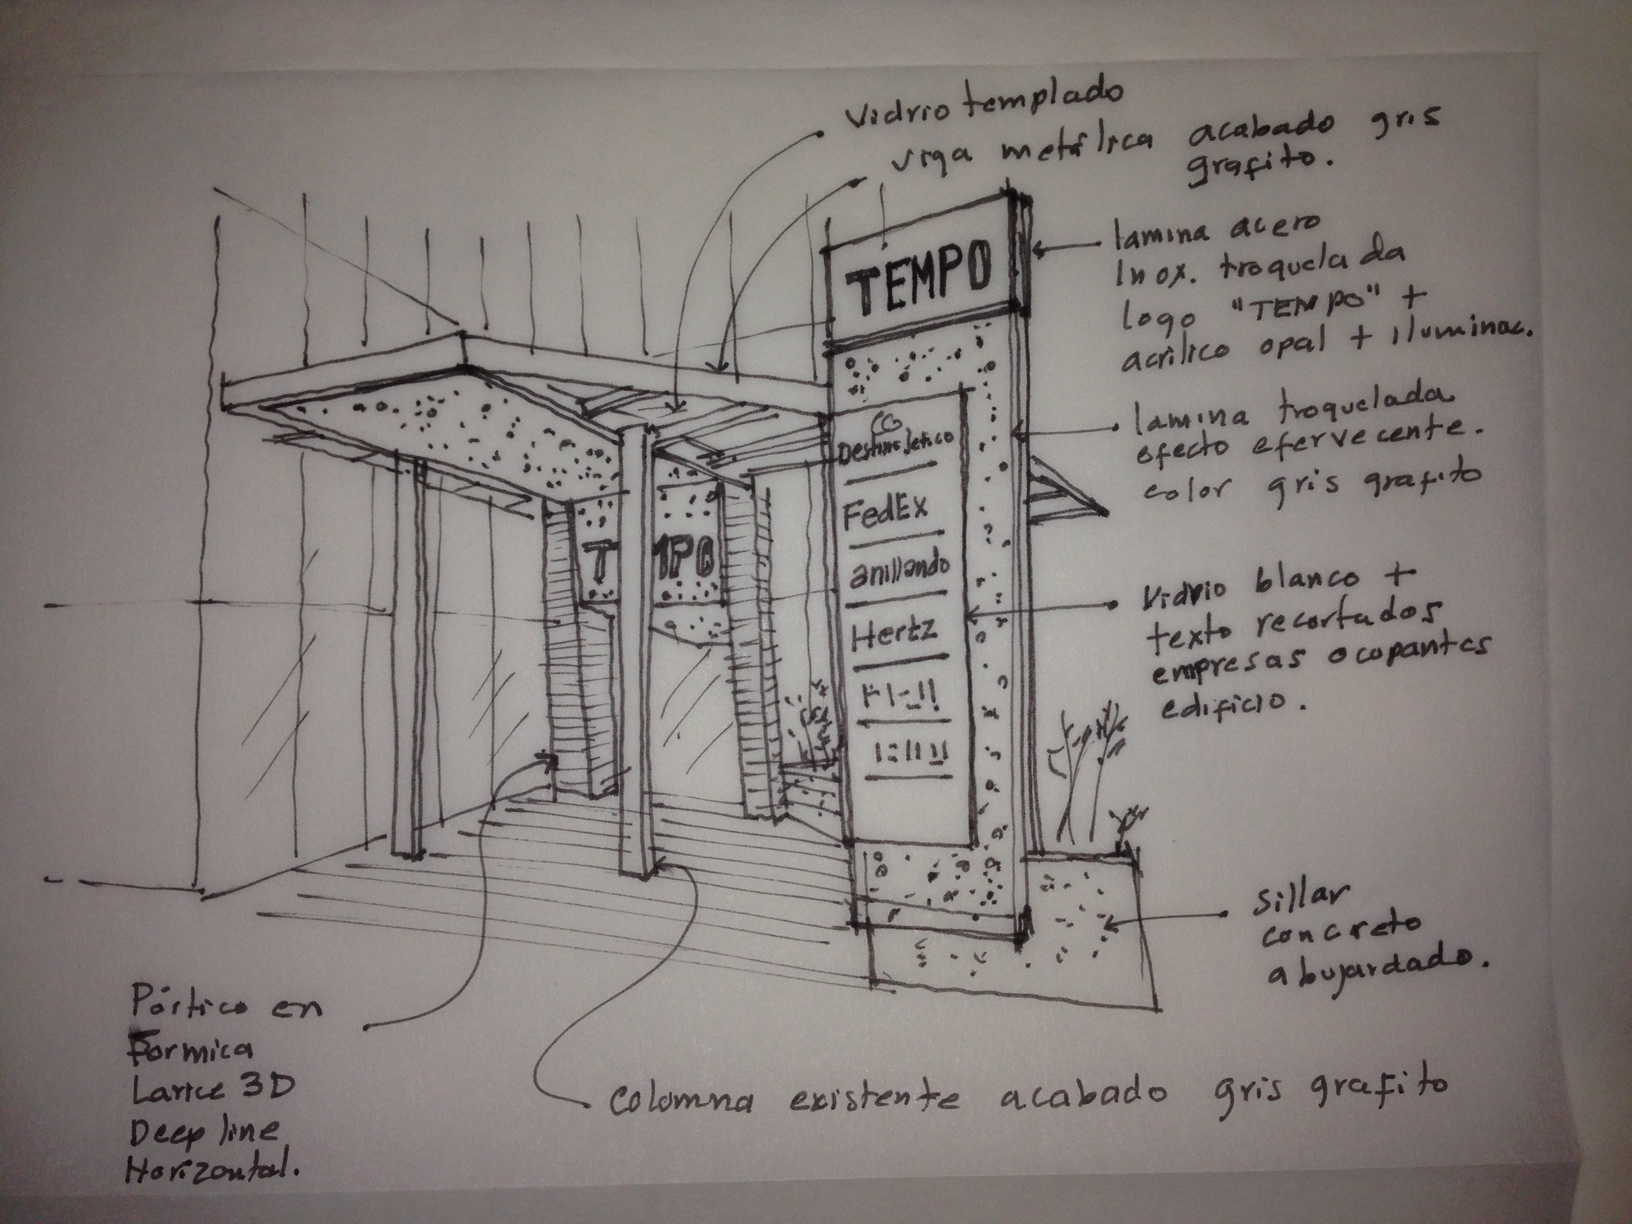 Vidrio templado
viga metálica acabado gris
grafito.
TEMPO
lamina acero
Inox. troquelada
logo "TEMPO" +
acrilico opal + iluminac.
lamina troquelada
efecto efervecente.
color gris grafito
FedEx
anillando
Hertz
T MPO
Vidrio blanco +
texto recortados
empresas ocupantes
edificio.
Sillar
concreto
abujardado.
Pórtico en
Formica
Larice 3D
Deep line
Horizontal.
Colomna existente acabado gris grafito